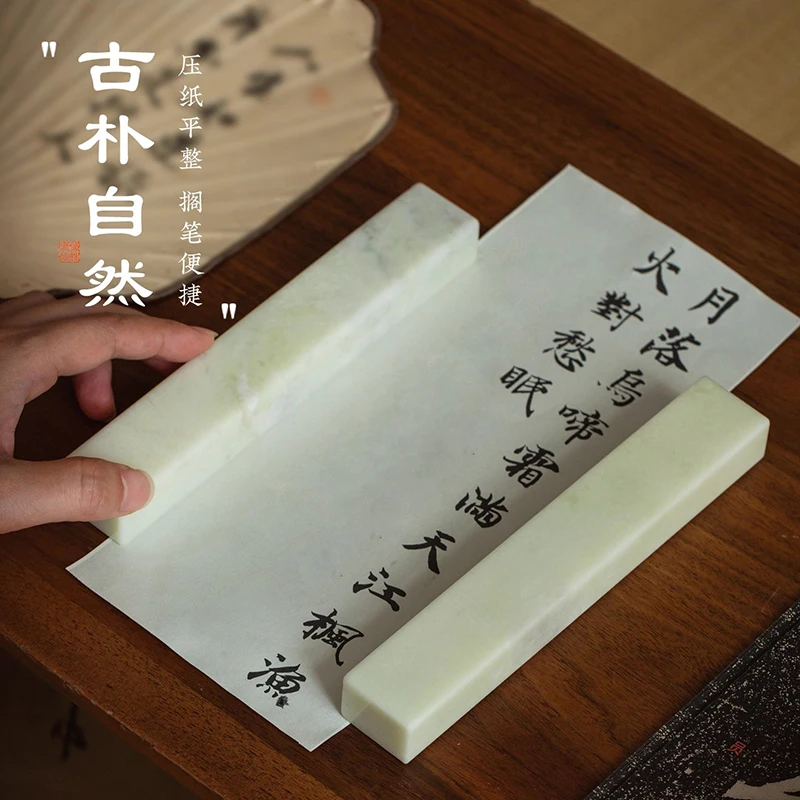 "古朴自然"
压纸平整 搁笔便捷
月落烏啼霜滿天江楓漁
火對愁眠